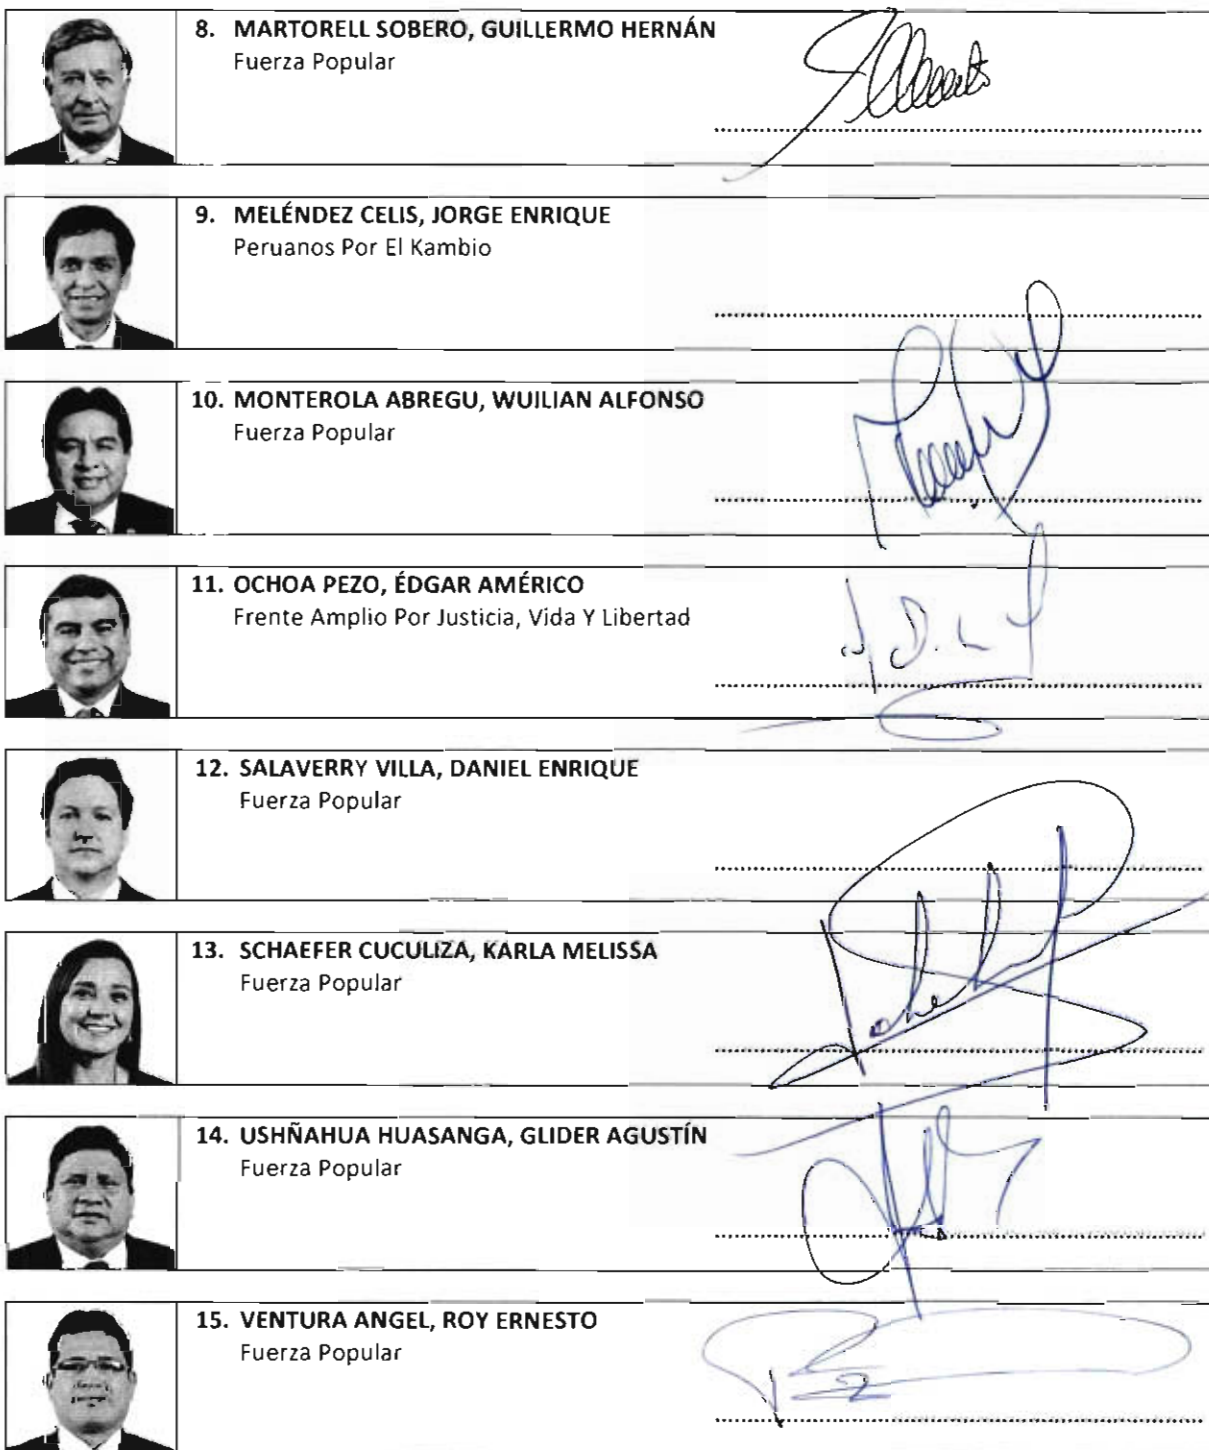 8. MARTORELL SOBERO, GUILLERMO HERNÁN
Fuerza Popular
9. MELÉNDEZ CELIS, JORGE ENRIQUE
Peruanos Por El Kambio
10. MONTEROLA ABREGU, WUILIAN ALFONSO
Fuerza Popular
11. OCHOA PEZO, ÉDGAR AMÉRICO
Frente Amplio Por Justicia, Vida Y Libertad
12. SALAVERRY VILLA, DANIEL ENRIQUE
Fuerza Popular
13. SCHAEFER CUCULIZA, KARLA MELISSA
Fuerza Popular
14. USHÑAHUA HUASANGA, GLIDER AGUSTÍN
Fuerza Popular
15. VENTURA ANGEL, ROY ERNESTO
Fuerza Popular